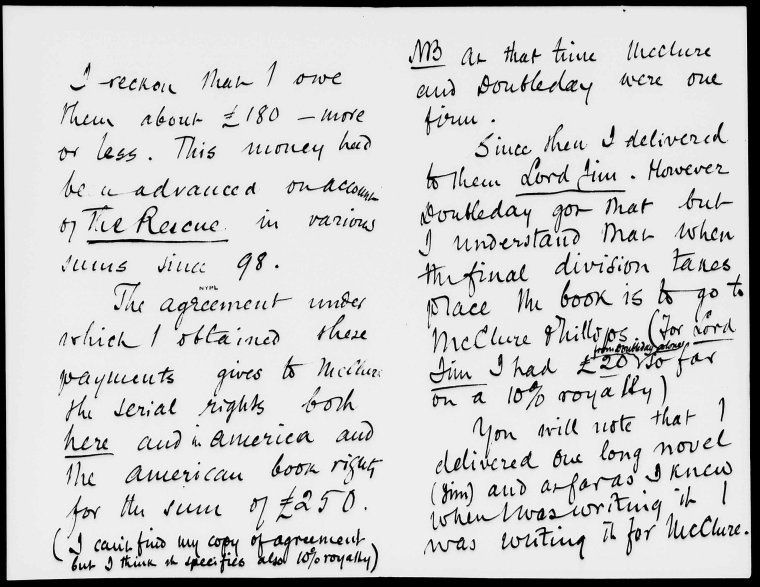 I reckon that I owe
them about £180 — more
or less. This money had
been advanced on account
of The Rescue in various
sums since 98.
NYPL
The agreement under
which I obtained these
payments gives to McClure
the serial rights both
here and in america and
the american book rights
for the sum of £250.
(I can't find my copy of agreement
but I think it specifies also 10% royalty)
NB At that time McClure
and Doubleday were one
firm.
Since then I delivered
to them Lord Jim. However
Doubleday got that but
I understand that when
the final division takes
place the book is to go to
McClure Phillips (For Lord
from Doubleday alone
Jim I had £20 so far
on a 10% royalty)
You will note that I
delivered one long novel
(Jim) and as far as I knew
when I was writing it I
was writing it for McClure.